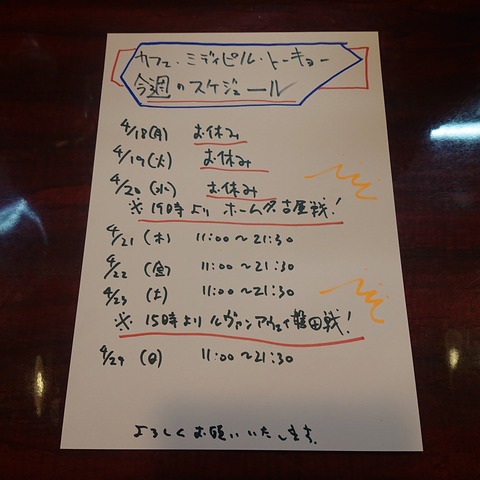 カフェ・ミディピル・トーキョー
今週のスケジュール
4/18(月) お休み
4/19(火) お休み
4/20(水) お休み
※19時よりホーム名古屋戦!
4/21(木) 11:00~21:30
4/22(金) 11:00~21:30
4/23(土) 11:00~21:30
※15時よりルヴァンアウェイ磐田戦!
4/24(日) 11:00~21:30
よろしくお願いいたします。